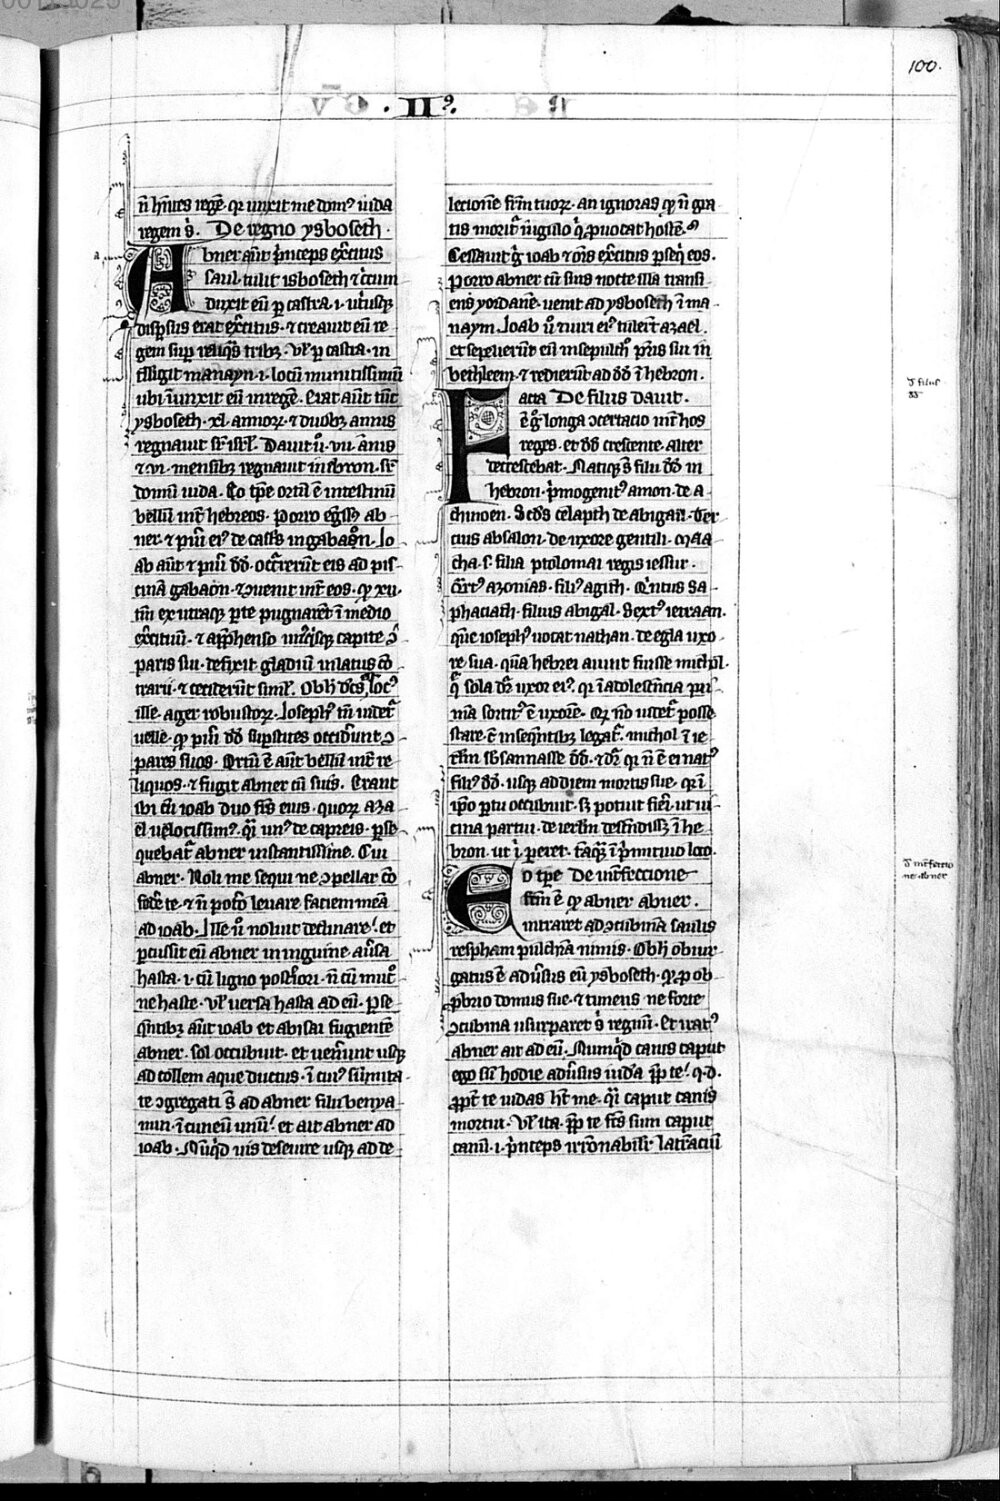 100.
. II⁹.
n̄ h̄ntes regē· qr unxit me dom⁹ iuda
regem s̄. De regno ysboseth·
Abner aūt p̄nceps ex̄citus
saul· tulit isboseth ⁊ c̄cum
duxit eū ꝑ castra· i· utiusqꝫ
disꝑsus erat ex̄citus· ⁊ creauit eū re
gem suꝑ reliq̄s tribꝫ· Vl̓ ꝑ castra· in
ubi iūnxit eū in regē· Erat aūt tūc
ysboseth· xl· annoꝝ· ⁊ duobꝫ annis
regnauit sr̄ isrl̄. Dauit ū· vii· ānis
⁊ vi· mensibꝫ regnauit in ebron· sr̄
domū iuda. Eo tp̄e ortū ē intestinū
bellū int̄ hebreos· Porro eḡssꝫ ab
ner· ⁊ piūi ei⁹ de cast̄s in gabaon· Io
ab aūt ⁊ piūi dd̄· occ̄rerūt eis ad pis
cinā gabaon· ⁊ ꝯuenit int̄ eos· qꝫ xii·
tm̄ ex utraqꝫ ꝑte pugnarēt ī medio
ex̄cituū· ⁊ app̄henso utiusqꝫ capite ꝯ
paris sui· defixit gladiū in latus cō
trarii· ⁊ ceciderūt siml̓. Obh̄ dc̄s loc⁹
ille· ager robustoꝝ· Ioseph⁹ tn̄ uidet̄
uelle· qꝫ piūi dd̄ suꝑstites occidūnt ꝯ
pares suos· Ortū ē aūt bellū int̄ re
liquos· ⁊ fugit abner cū suis. Erant
ibi cū ioab duo fr̄s eius· quoꝝ aza
el uelocissim⁹· q̄i un⁹ de capreis· ꝑse
quebat̄ abner instantissime. Cui
abner· Noli me sequi ne ꝯpellar cō
fodēte te· ⁊ n̄ pot̄o leuare faciem meā
ad ioab· Ille ū noluit declinare· et
ꝑcussit eū abner in inguine· au̓sa
hasta· i· cū ligno post̄iori· n̄ cū muc̄o
ne haste· vl̓ uersa hasta ad eū· Ꝑse
q̄ntibꝫ aūt ioab et abisai fugientē
abner· sol occubuit· et uen̄unt usqꝫ
ad collem aque ductus· ī cui⁹ sūmita
te ꝯgregati s̄ ad abner filii benya
min· ī cuneū unū· et ait abner ad
ioab· Nūq̄d uis deseuire usqꝫ ad de
lecionē fr̄m tuoꝝ· an ignoras qꝫ n̄ gra
tis morit̄ ui gilio q̄ ꝓuocat hostē·
Cessauit g̊ ioab ⁊ om̄s ex̄citus ꝑseq̄ eos.
Porro abner cū suis nocte illa transi
ens yordanē· uenit ad ysboseth ī ma
naym· Ioab ū ⁊ uiri ei⁹ tulert̄ azael·
et sepelierūt eū in sepulch̄o pr̄is sui in
bethleem· ⁊ redierūt ad dd̄ ī hebron.
Facta De filiis dauit.
ē g̊ longa ꝯcertacio int̄ hos
reges· et dd̄ crescente· alter
decrescebat· Natiqꝫ s̄ filii dd̄ in
hebron· p̄mogenit⁹ amon· de a
chinoen· Sc̄ds celapth de abigail· Ter
cius absalon· de uxore gentili· maa
cha· s· filia ptolomai regis iessur·
Qu̓rt⁹ azonias· fili⁹ agith· Q̄intus sa
phaciath· filius abigal· Sext⁹ ietraan·
quē ioseph⁹ uocat nathan· de egla uxo
re sua· quā hebrei aiunt fuisse michol·
q̄ sola dr̄ uxor ei⁹· qr ī adolescn̄cia pri
mā sortit⁹ ē uxorē· Qꝫ nō uidet̄ posse
stare· ē inseq̄ntibꝫ legat̄· michol ī ie
rl̄m sb̄sannasse dd̄· ⁊ dr̄ qr n̄ ē ei nat⁹
fili⁹ dd̄· usqꝫ ad diem mortis sue· qr ī
ip̄o ꝑtu occubuit· sꝫ potuit fieri ut ui
cina partui· de ierl̄m descn̄dissꝫ ī he
bron· ut ī ꝑeret· tāqꝫ ī p̄mitiuo loco.
Eo tp̄e De int̄fectione
fc̄m ē qꝫ abner abner·
intraret ad ꝯcubinā saulis
respham pulch̄ā nimis· Obh̄ obiur
gatus ē adu̓sus eū ysboseth· qꝫ ꝓ ob
ꝓbrio domus sue· ⁊ timens ne forte
ꝯcubina usurparet s̄ regnū· Et irat⁹
abner ait ad eū· Nunq̄d canis caput
ego sū hodie adu̓sus iuda ꝓp̄ te· q·d·
ꝓpt̄ te iudas ht̄ me· q̄i caput canis
mortui· Vl̓ ita· ꝓp̄ te fc̄s sum caput
canū· i· p̄nceps irr̄onabiliū latrāciū
d̄ filiis
dd̄
d̄ int̄fectio
ne abner